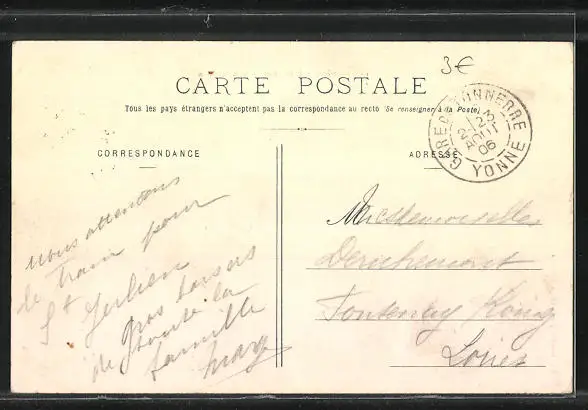 3€
CARTE POSTALE
Tous les pays étrangers n'acceptent pas la correspondance au recto (Se renseigner à la Poste)
GARE DE TONNERRE
23
AOUT
06
YONNE
CORRESPONDANCE
ADRESSE
nous attendons
le train pour
St
gros baisers
de toute la
famille
Mesdemoiselles
Fontenay